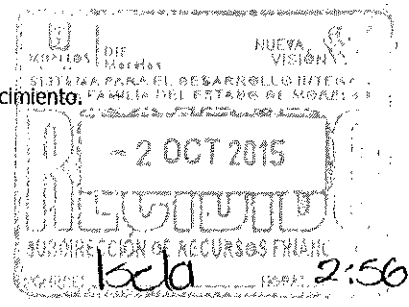 MORELOS
DIF
Morelos
NUEVA
VISIÓN
SISTEMA PARA EL DESARROLLO INTEGRAL
cimiento.
FAMILIA DEL ESTADO DE MORELOS
- 2 OCT 2015
RECIBIDO
SUBDIRECCIÓN DE RECURSOS FINANC
Iscla
2:56